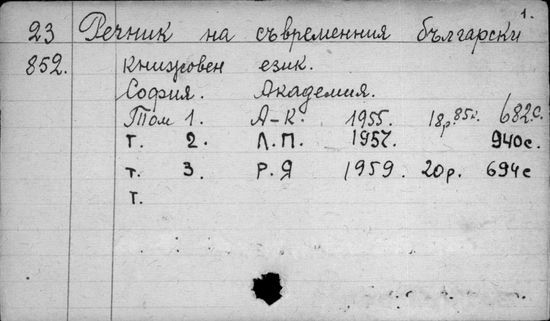 1.
23 Речник на съвременния български
852. книжовен език.
София. Академия.
Том 1. А-К. 1955. 18р85к. 682с.
т. 2. Л.П. 1957. 940с.
т. 3. Р.Я 1959. 20р. 694с
т.